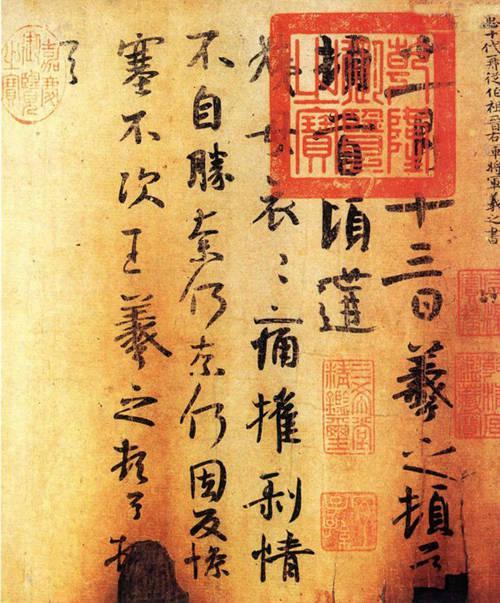 臣十代再從伯祖晉右軍將軍羲之書
十一月十三日羲之頓首
頓首頃遘
姨母哀〻痛摧剝情
不自勝奈何奈何因反慘
塞不次王羲之頓首頓
首
乾隆御覽之寶
三希堂精鑑璽
宜子孫
嘉慶御覽之寶